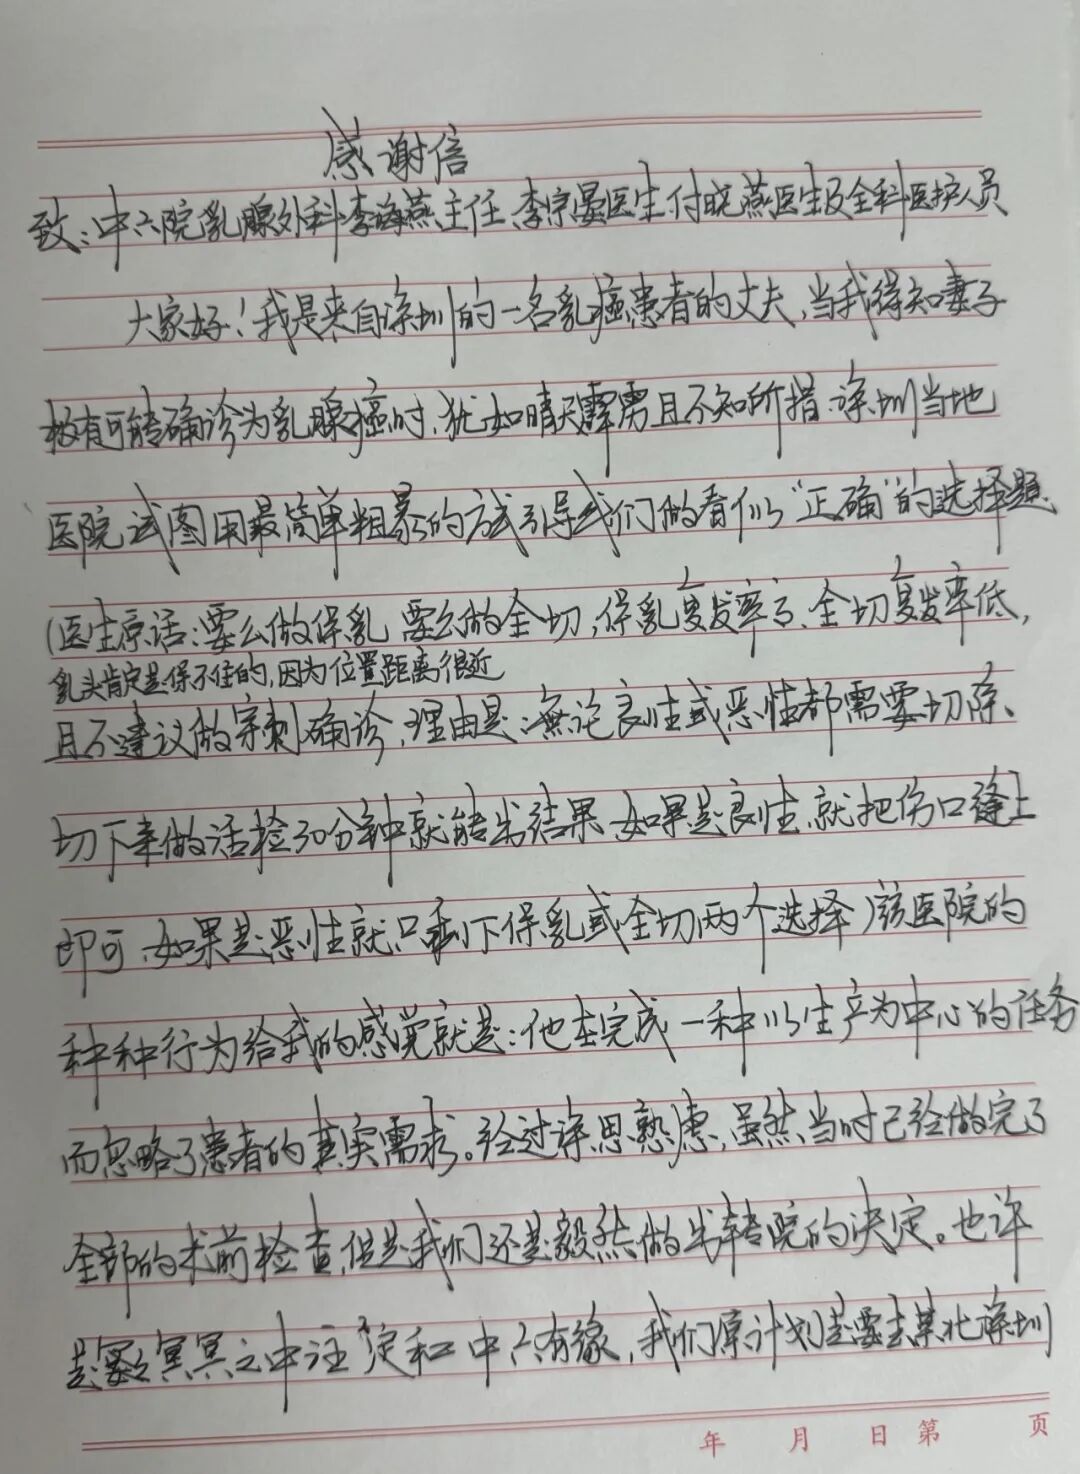 感谢信
致:中六院乳腺外科李海燕主任、李宗晏医生付晓燕医生及全科医护人员
大家好!我是来自深圳的一名乳癌患者的丈夫,当我得知妻子
极有可能确诊为乳腺癌时,犹如晴天霹雳且不知所措.深圳当地
医院试图用最简单粗暴的方式引导我们做看似“正确”的选择题、
(医生原话:要么做保乳 要么做全切,保乳复发率高、全切复发率低,
乳头肯定是保不住的,因为位置距离很近
且不建议做穿刺确诊,理由是:无论良性或恶性都需要切除、
切下来做活检30分钟就能出结果.如果是良性,就把伤口缝上
即可.如果是恶性就只剩下保乳或全切两个选择)该医院的
种种行为给我的感觉就是:他在完成一种以生产为中心的任务
而忽略了患者的真实需求。经过深思熟虑,虽然当时已经做完了
全部的术前检查,但是我们还是毅然做出转院的决定。也许
是冥冥之中注定和中六有缘,我们原计划是要去某北深圳
年 月 日 第 页